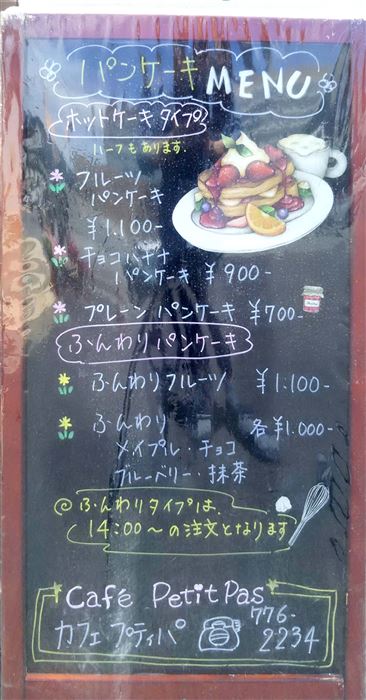 パンケーキ MENU
ホットケーキタイプ
ハーフもあります。
フルーツ
パンケーキ
¥1.100-
チョコバナナ
パンケーキ ¥900-
プレーン パンケーキ ¥700-
ふんわり パンケーキ
ふんわりフルーツ ¥1.100-
ふんわり 各¥1.000-
メイプル・チョコ
ブルーベリー・抹茶
◎ふんわりタイプは、
14:00〜の注文となります
Café Petit Pas
カフェ プティパ 776-
2234